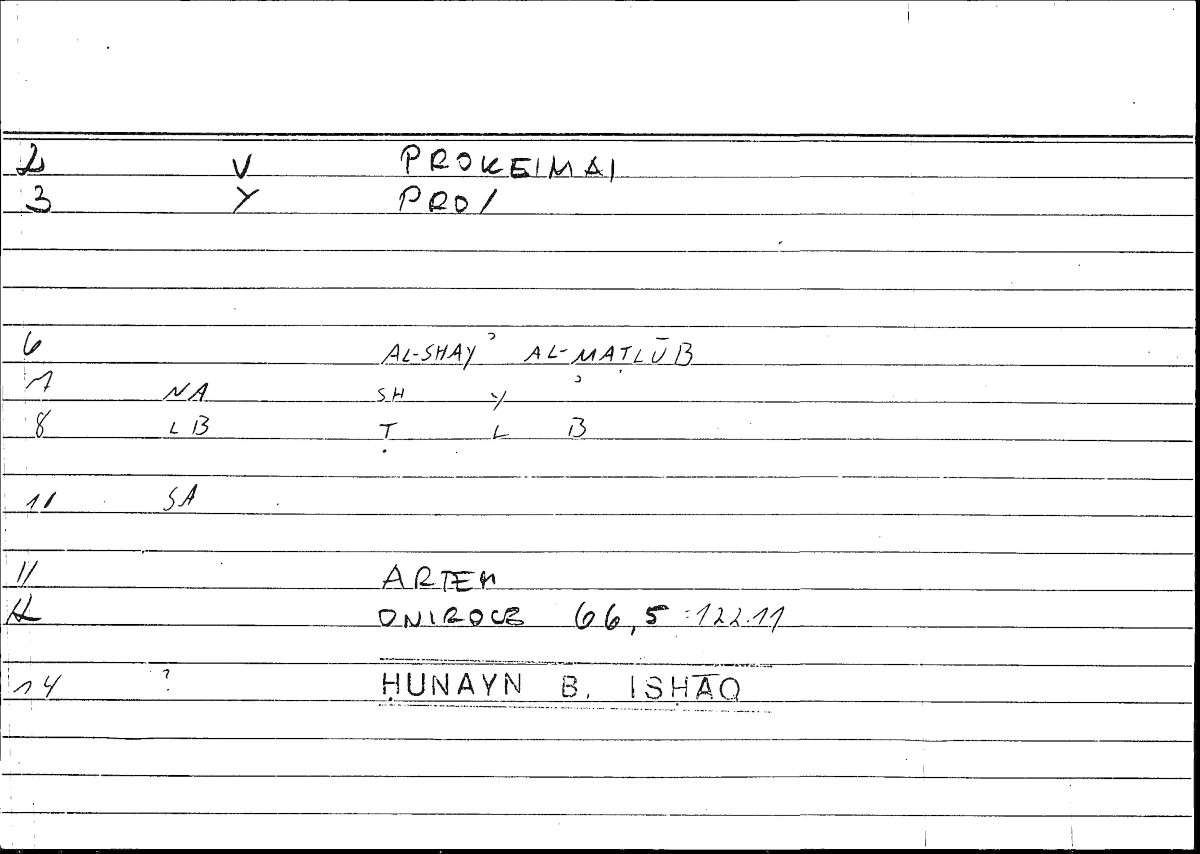 2 V PROKEIMAI
3 Y PRO/
6 AL-SHAYʾ AL-MAṬLŪB
7 NA SH Y ʾ
8 LB Ṭ L B
11 SA
11 ARTEM
ONIROCR 66,5 :122.11
14 ? ḤUNAYN B. ISḤĀQ